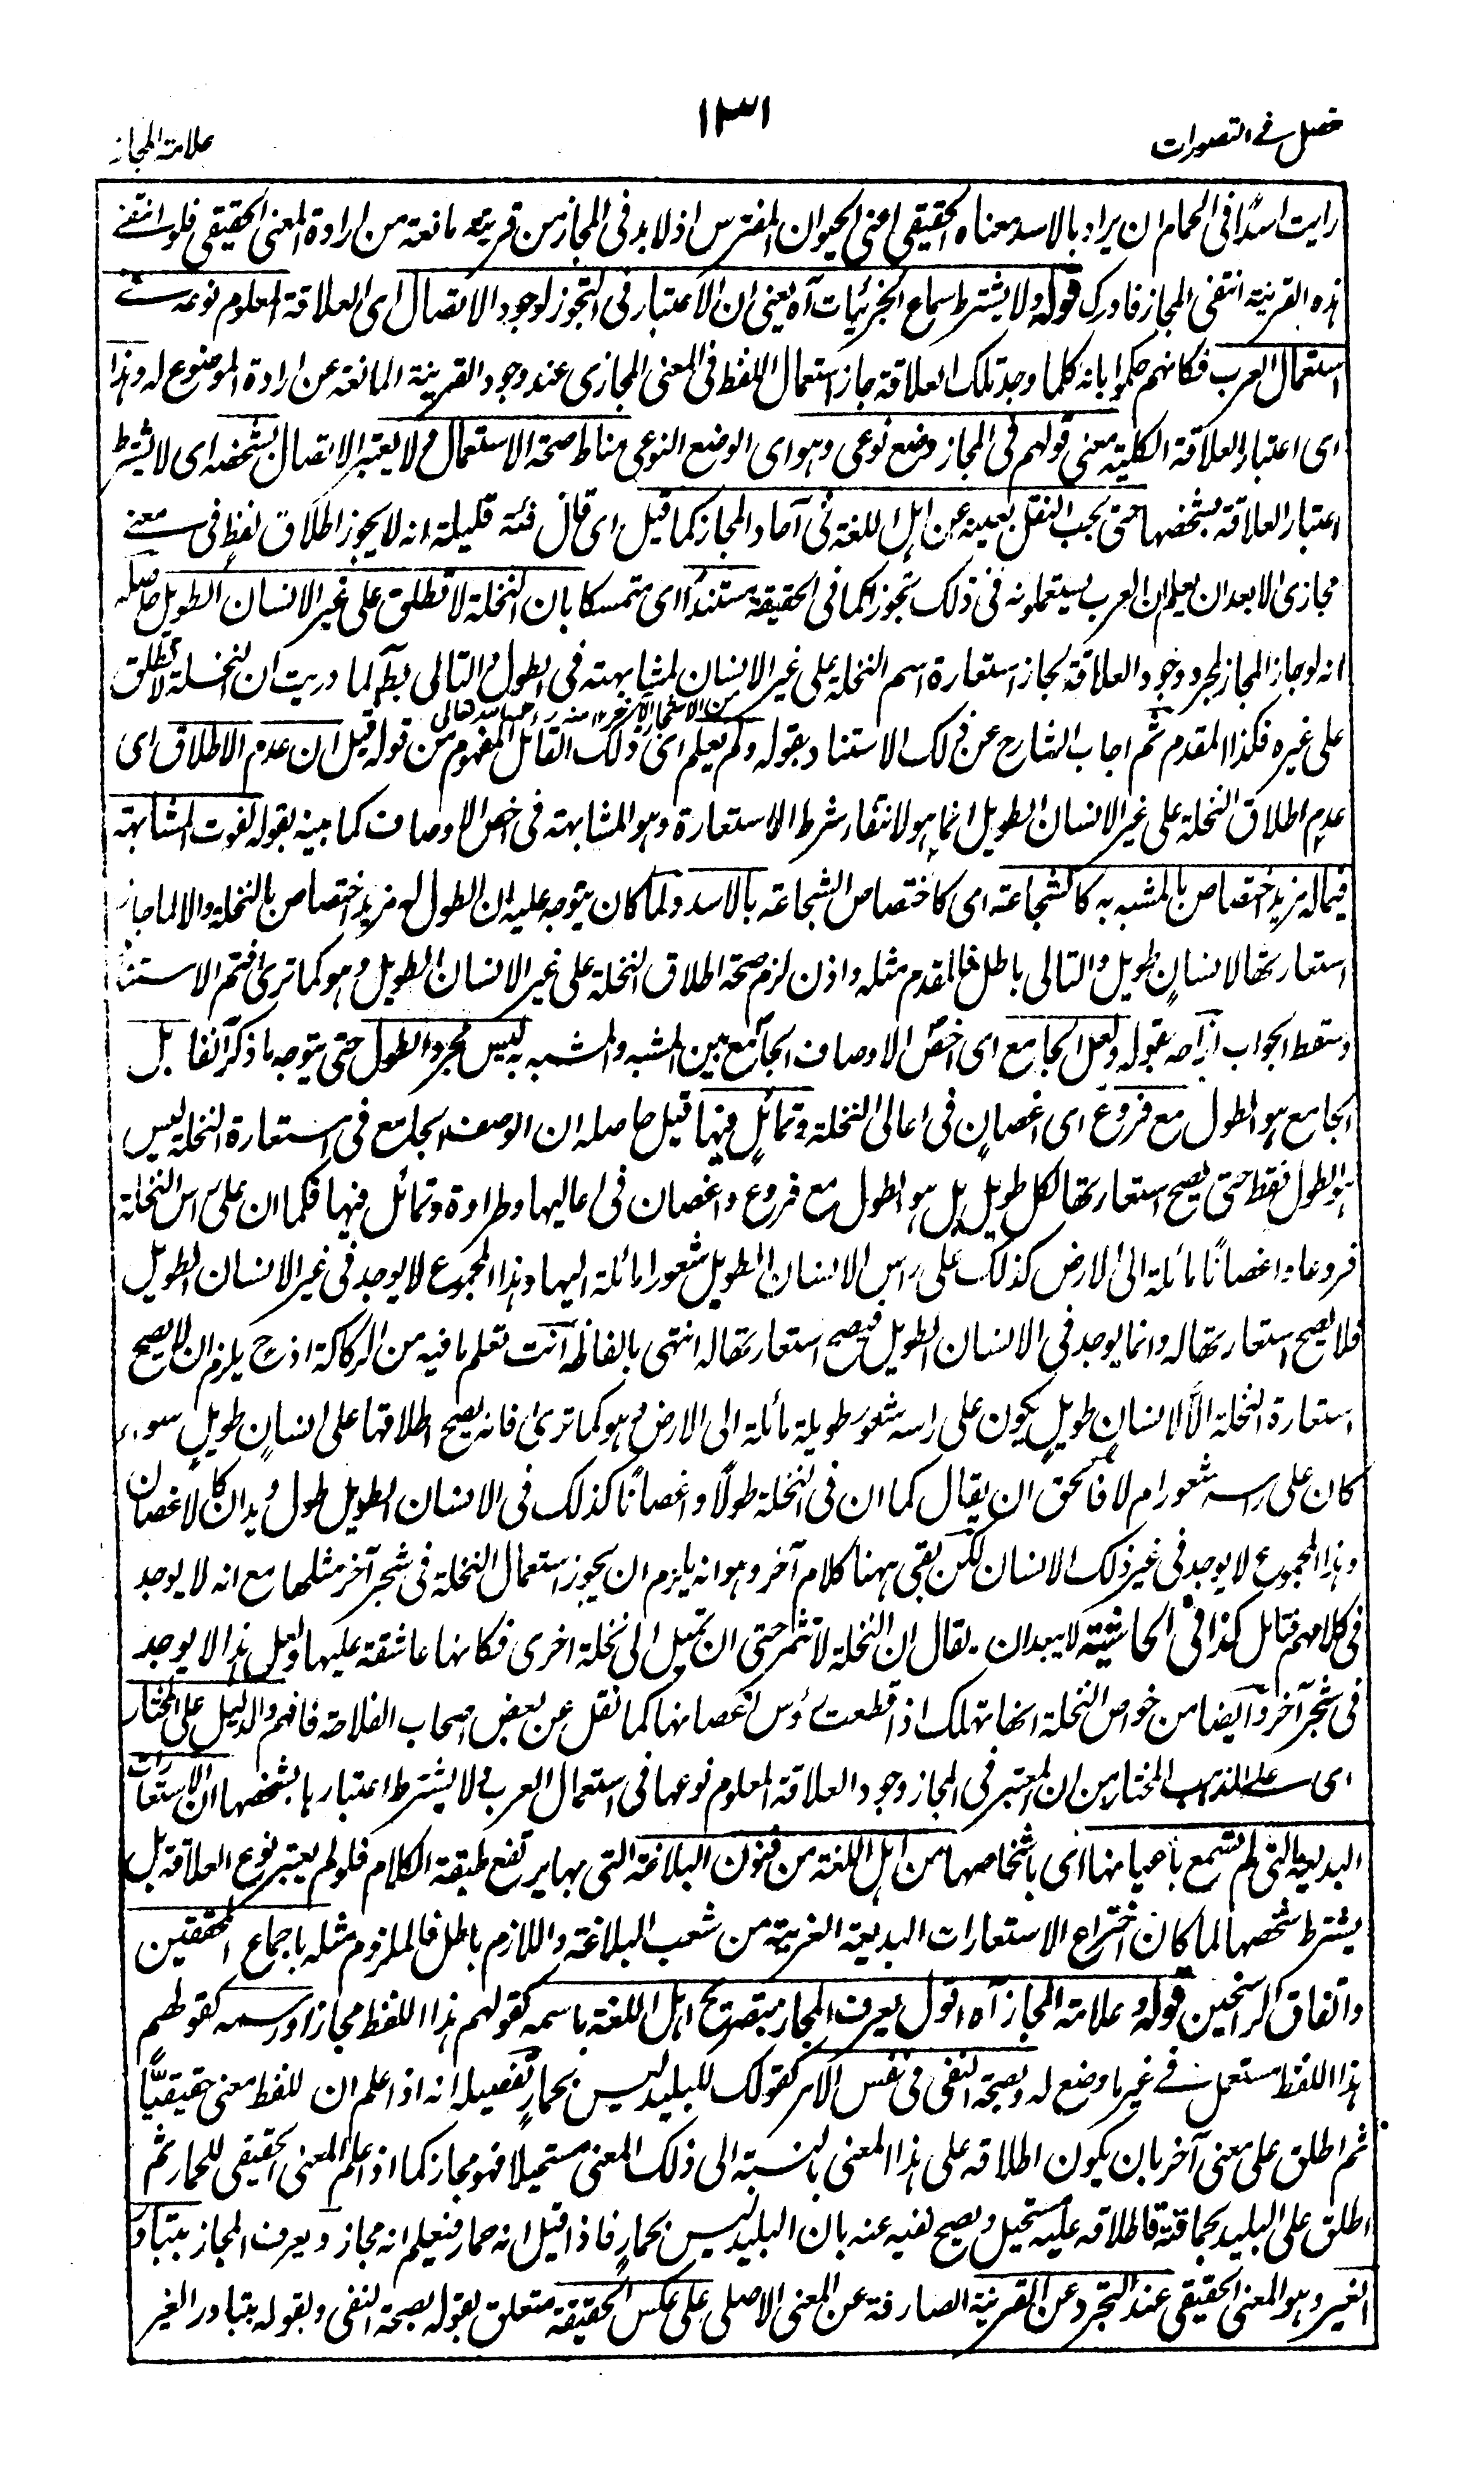 فصل فى التصورات
١٣١
علامة المجاز
رايت اسدًا فى الحمام ان يراد بالاسد معناه الحقيقى اعنى الحيوان المفترس اذ لا بد فى المجاز من قرينة مانعة من ارادة المعنى الحقيقى فلو انتفى
هذه القرينة انتفى المجاز فادرك قوله ولا يشترط سماع الجزئيات آه يعنى ان الاعتبار فى التجوز لوجود الاتصال اى العلاقة المعلوم نوعه فى
استعمال العرب فكانهم حكموا بانه كلما وجد تلك العلاقة جاز استعمال اللفظ فى المعنى المجازى عند وجود القرينة المانعة عن ارادة الموضوع له وهذا
اى اعتبار العلاقة الكلية معنى قولهم فى المجاز وضع نوعى وهو اى الوضع النوعى مناط صحة الاستعمال ولا يعتبر الاتصال بشخصه اى لا يشترط
اعتبار العلاقة بشخصها حتى يجب النقل بعينه عن اهل اللغة فى آحاد المجاز كما قيل اى قال فئة قليلة انه لا يجوز اطلاق لفظٍ فى معنى
مجازى الا بعد ان يعلم ان العرب يستعملونه فى ذلك تجوزا كما فى الحقيقة مستندًا اى متمسكا بان النخلة لا تطلق على غير الانسان الطويل حاصله
انه لو جاز المجاز لمجرد وجود العلاقة لجاز استعارة اسم النخلة على غير الانسان لمشابهته فى الطول والتالى بط لما دريت ان النخلة لا تطلق
من الاشجار الآخر ١٢ منه رحمه الله تعالى
على غيره فكذا المقدم ثم اجاب الشارح عن ذلك الاستناد بقوله ولم يعلم اى ذلك القائل المفهوم من قوله قيل ان عدم الاطلاق اى
عدم اطلاق النخلة على غير الانسان الطويل انما هو لانتفاء شرط الاستعارة وهو المشابهة فى اخص الاوصاف كما بينه بقوله لفوت المشابهة
فيما له مزيد اختصاص بالمشبه به كالشجاعة اى كاختصاص الشجاعة بالاسد ولما كان يتوجه عليه ان الطول له مزيد اختصاص بالنخلة والا لما جاز
استعارتها لانسانٍ طويل والتالى باطل فالمقدم مثله واذن لزم صحة اطلاق النخلة على غير الانسان الطويل وهو كما ترى فتم الاستناد
وسقط الجواب ازاحه بقوله ولعل الجامع اى اخص الاوصاف الجامع بين المشبه والمشبه به ليس مجرد الطول حتى يتوجه ما ذكر آنفا بل
الجامع هو الطول مع فروع اى اغصانٍ فى اعالى النخلة وتمائلٍ فيها قيل حاصله ان الوصف الجامع فى استعارة النخلة ليس
هو الطول فقط حتى يصح استعارتها لكل طويل بل هو الطول مع فروع واغصان فى اعاليها وطراوة وتمائل فيها فكما ان على راس النخلة
فروعا واغصانًا مائلة الى الارض كذلك على راس الانسان الطويل شعورا مائلة اليها وهذا المجموع لا يوجد فى غير الانسان الطويل
فلا يصح استعارتها له وانما يوجد فى الانسان الطويل فيصح استعارتها له انتهى بالفاظه انت تعلم ما فيه من الركاكة اذ ح يلزم ان لا يصح
استعارة النخلة الا لانسانٍ طويلٍ يكون على راسه شعور طويلة مائلة الى الارض وهو كما ترى فانه يصح اطلاقها على انسانٍ طويلٍ سواء
كان على راسه شعور ام لا فالحق ان يقال كما ان فى النخلة طولًا واغصانًا كذلك فى الانسان الطويل طول ويدان كالاغصان
وهذا المجموع لا يوجد فى غير ذلك الانسان لكن بقى ههنا كلام آخر وهو انه يلزم ان يجوز استعمال النخلة فى شجر آخر مثلها مع انه لا يوجد
فى كلامهم فتامل كذا فى الحاشية لا يبعد ان يقال ان النخلة لا تثمر حتى ان تميل الى نخلة اخرى فكانها عاشقة عليها ولعل هذا لا يوجد
فى شجر آخر وايضا من خواص النخلة انها تهلك اذا قطعت رؤس اغصانها كما نقل عن بعض اصحاب الفلاحة فافهم والدليل على المختار
اى على المذهب المختار من ان المعتبر فى المجاز وجود العلاقة المعلوم نوعها فى استعمال العرب ولا يشترط اعتبارها بشخصها ان الاستعارات
البديعة التى لم تسمع باعيانها اى باشخاصها من اهل اللغة من فنون البلاغة التى بها يرتفع طبقة الكلام فلو لم يعتبر نوع العلاقة بل
يشترط شخصها لما كان اختراع الاستعارات البديعة الغريبة من شعب البلاغة واللازم باطل فالملزوم مثله باجماع المحققين
واتفاق الراسخين قوله وعلامة المجاز آه اقول يعرف المجاز بتصريح اهل اللغة باسمه كقولهم هذا اللفظ مجاز او رسمه كقولهم
هذا اللفظ مستعمل فى غير ما وضع له وبصحة النفى فى نفس الامر كقولك للبليد ليس بحمارٍ تفصيله انه اذا علم ان للفظ معنى حقيقيًّا
ثم اطلق على معنى آخر بان يكون اطلاقه على هذا المعنى بالنسبة الى ذلك المعنى مستحيلا فهو مجاز كما اذا علم المعنى الحقيقى للحمار ثم
اطلق على البليد بحماقته فاطلاقه عليه مستحيل ويصح نفيه عنه بان البليد ليس بحمارٍ فاذا قيل انه حمار فنعلم انه مجاز ويعرف المجاز بتبادر
الغير وهو المعنى الحقيقى عند التجرد عن القرينة الصارفة عن المعنى الاصلى على عكس الحقيقة متعلق بقوله بصحة النفى وبقوله بتبادر الغير